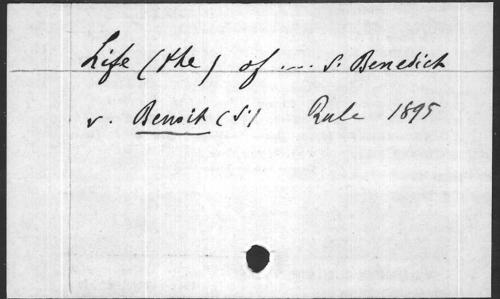 Life (the) of .... S. Benedict
v. Benoit (S.) Rule 1895